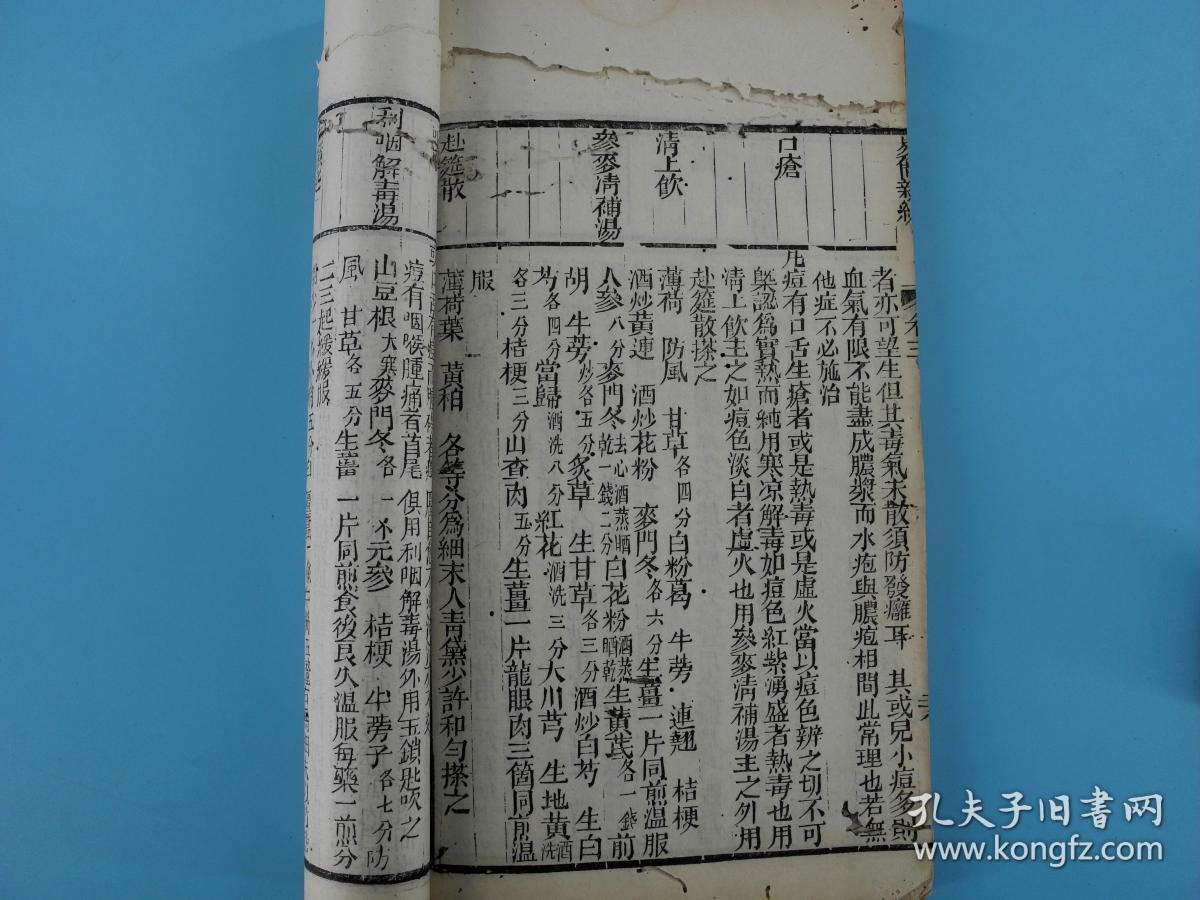 者亦可望生但其毒氣未散須防發癰耳 其或兒小痘多則
血氣有限不能盡成膿漿而水疱與膿疱相間此常理也若無
他症不必施治
口瘡
凡痘有口舌生瘡者或是熱毒或是虛火當以痘色辨之切不可
槩認為實熱而純用寒凉解毒如痘色紅紫湧盛者熱毒也用
清上飲主之如痘色淡白者虛火也用參麥清補湯主之外用
赴筵散搽之
清上飲
薄荷 防風 甘草各四分白粉葛 牛蒡 連翹 桔梗
酒炒黃連 酒炒花粉 麥門冬各六分生薑一片同煎溫服
參麥清補湯
人參八分麥門冬去心酒蒸晒乾一錢二分白花粉酒蒸晒乾生黃芪各一錢前
胡 牛蒡炒各五分炙草 生甘草各三分酒炒白芍 生白
芍各四分當歸酒洗八分紅花酒洗三分大川芎 生地黃酒洗
各三分桔梗三分山查肉五分生薑一片龍眼肉三箇同煎溫
服
赴筵散
薄荷葉 黃柏 各等分為細末入青黛少許和勻搽之
痘有咽喉腫痛者首尾俱用利咽解毒湯外用玉鎖匙吹之
利咽解毒湯
山豆根大寒麥門冬各一 元參 桔梗 牛蒡子各七分防
風 甘草各五分生薑一片同煎食後良久溫服每藥一煎分
二三起緩緩服
孔夫子旧書网
www.kongfz.com